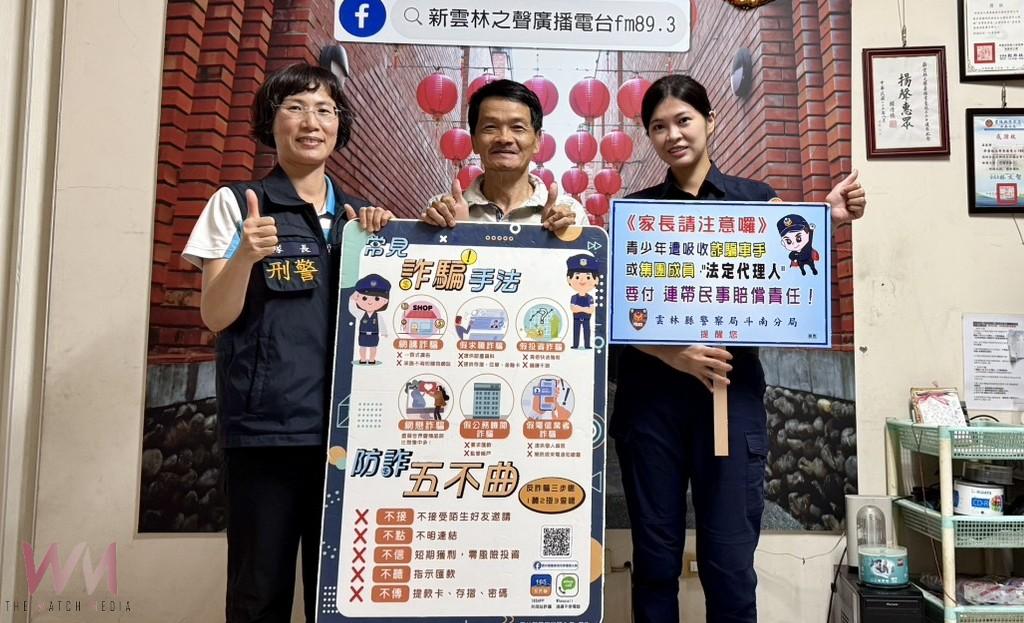 新雲林之聲廣播電台fm89.3
揚聲惠眾
感謝狀
隊長
刑警
常見
詐騙手法
SHOP
網購詐騙
假求職詐騙
假投資詐騙
網戀詐騙
假公務機關
詐騙
假電信業者
詐騙
防詐
五不曲
反詐騙三步驟
1聽2掛3查證
不接 不接受陌生好友邀請
不點 不明連結
不信 短期獲利，零風險投資
不聽 指示匯款
不傳 提款卡、存摺、密碼
165
《家長請注意囉》
青少年遭吸收詐騙車手
或集團成員，"法定代理人"
要付 連帶民事賠償責任！
雲林縣警察局斗南分局
提醒您
CD-R
WM
THE WATCH MEDIA